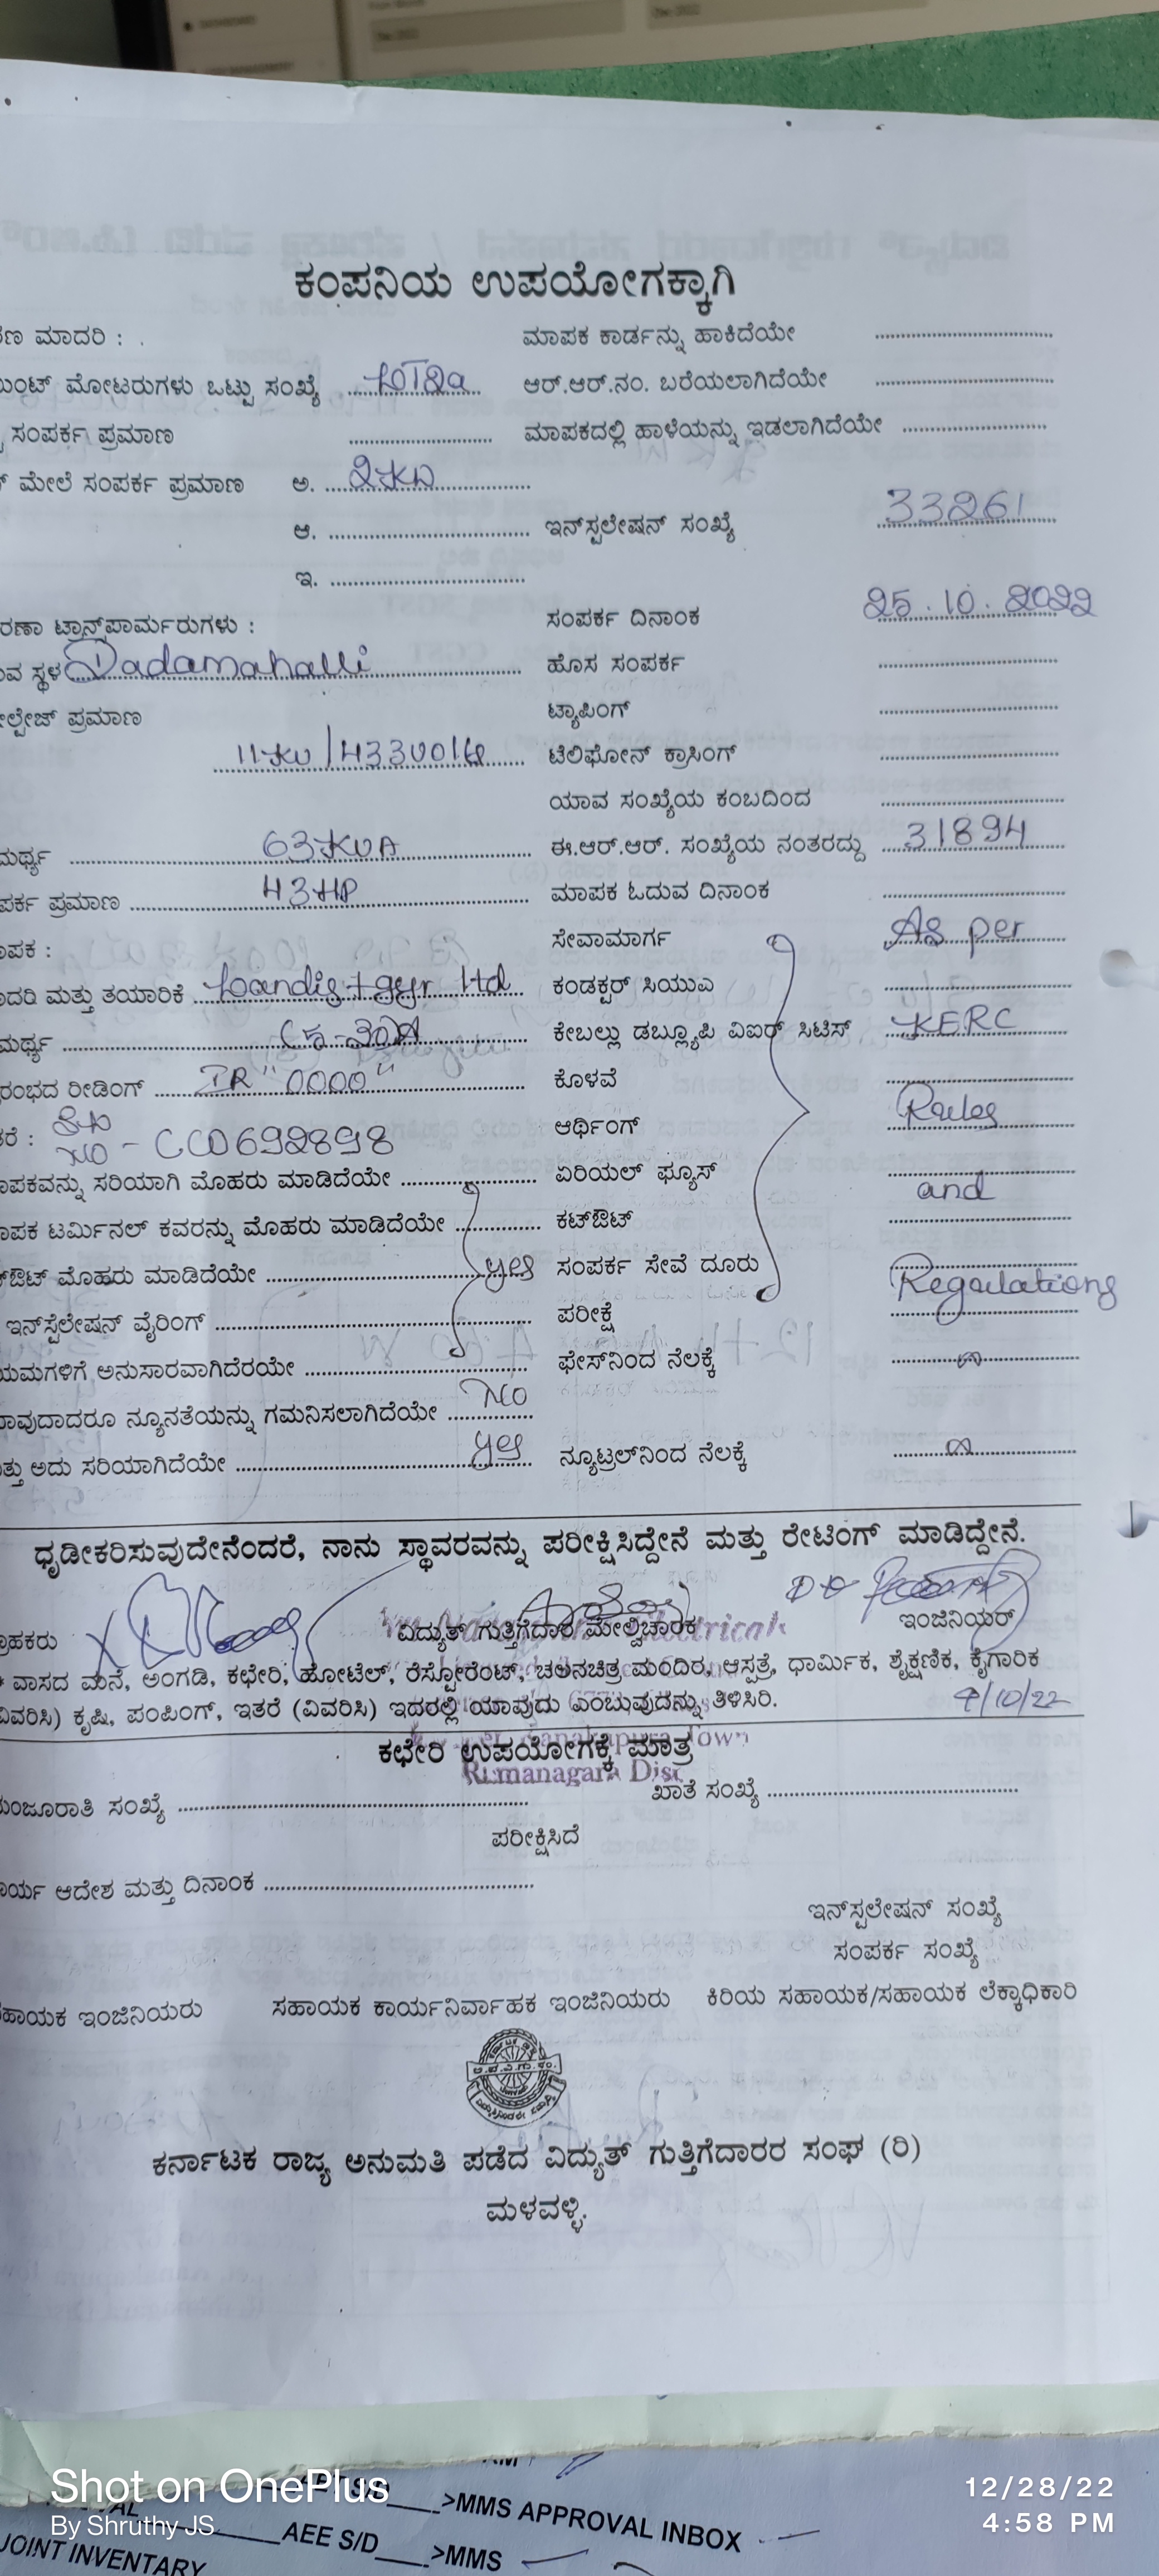 ಕಂಪನಿಯ ಉಪಯೋಗಕ್ಕಾಗಿ
ಮಾದರಿ : . ಮಾಪಕ ಕಾರ್ಡನ್ನು ಹಾಕಿದೆಯೇ
ಮೋಟರುಗಳು ಒಟ್ಟು ಸಂಖ್ಯೆ ಆರ್.ಆರ್.ನಂ. ಬರೆಯಲಾಗಿದೆಯೇ
ಸಂಪರ್ಕ ಪ್ರಮಾಣ ಮಾಪಕದಲ್ಲಿ ಹಾಳೆಯನ್ನು ಇಡಲಾಗಿದೆಯೇ
ಮೇಲೆ ಸಂಪರ್ಕ ಪ್ರಮಾಣ ಅ.
ಆ. ಇನ್‌ಸ್ಪಲೇಷನ್ ಸಂಖ್ಯೆ 33261
ಇ.
ಟ್ರಾನ್ಸ್‌ಪಾರ್ಮರುಗಳು : ಸಂಪರ್ಕ ದಿನಾಂಕ 25.10.2022
ಸ್ಥಳ Dadamahalli ಹೊಸ ಸಂಪರ್ಕ
ಪ್ರಮಾಣ ಟ್ಯಾಪಿಂಗ್
ಟೆಲಿಫೋನ್ ಕ್ರಾಸಿಂಗ್
ಯಾವ ಸಂಖ್ಯೆಯ ಕಂಬದಿಂದ
63KVA ಈ.ಆರ್.ಆರ್. ಸಂಖ್ಯೆಯ ನಂತರದ್ದು 31894
ಪ್ರಮಾಣ 43HP ಮಾಪಕ ಓದುವ ದಿನಾಂಕ
ಸೇವಾಮಾರ್ಗ As per
ಮತ್ತು ತಯಾರಿಕೆ Landis+gyr ltd ಕಂಡಕ್ಟರ್ ಸಿಯುಎ
ಕೇಬಲ್ಲು ಡಬ್ಲ್ಯೂಪಿ ವಿಐಆರ್ ಸಿಟಿಸ್ KERC
ರೀಡಿಂಗ್ IR "0000" ಕೊಳವೆ
CC0692898 ಆರ್ಥಿಂಗ್ Rules
ಸರಿಯಾಗಿ ಮೊಹರು ಮಾಡಿದೆಯೇ ಏರಿಯಲ್ ಫ್ಯೂಸ್ and
ಟರ್ಮಿನಲ್ ಕವರನ್ನು ಮೊಹರು ಮಾಡಿದೆಯೇ ಕಟ್‌ಔಟ್
ಮೊಹರು ಮಾಡಿದೆಯೇ yes ಸಂಪರ್ಕ ಸೇವೆ ದೂರು Regulations
ಇನ್‌ಸ್ಪೆಲೇಷನ್ ವೈರಿಂಗ್ ಪರೀಕ್ಷೆ
ಅನುಸಾರವಾಗಿದೆರಯೇ ಫೇಸ್‌ನಿಂದ ನೆಲಕ್ಕೆ
ನ್ಯೂನತೆಯನ್ನು ಗಮನಿಸಲಾಗಿದೆಯೇ No
ಅದು ಸರಿಯಾಗಿದೆಯೇ yes ನ್ಯೂಟ್ರಲ್‌ನಿಂದ ನೆಲಕ್ಕೆ
ಧೃಡೀಕರಿಸುವುದೇನೆಂದರೆ, ನಾನು ಸ್ಥಾವರವನ್ನು ಪರೀಕ್ಷಿಸಿದ್ದೇನೆ ಮತ್ತು ರೇಟಿಂಗ್ ಮಾಡಿದ್ದೇನೆ.
ವಿದ್ಯುತ್ ಗುತ್ತಿಗೆದಾರ ಮೇಲ್ವಿಚಾರಕ ಇಂಜಿನಿಯರ್
ವಾಸದ ಮನೆ, ಅಂಗಡಿ, ಕಛೇರಿ, ಹೋಟೆಲ್, ರೆಸ್ಟೋರೆಂಟ್, ಚಲನಚಿತ್ರ ಮಂದಿರ, ಆಸ್ಪತ್ರೆ, ಧಾರ್ಮಿಕ, ಶೈಕ್ಷಣಿಕ, ಕೈಗಾರಿಕ
ಕೃಷಿ, ಪಂಪಿಂಗ್, ಇತರೆ (ವಿವರಿಸಿ) ಇದರಲ್ಲಿ ಯಾವುದು ಎಂಬುವುದನ್ನು ತಿಳಿಸಿರಿ.
ಕಛೇರಿ ಉಪಯೋಗಕ್ಕೆ ಮಾತ್ರ
Ramanagara Dist
ಸಂಖ್ಯೆ ಖಾತೆ ಸಂಖ್ಯೆ
ಪರೀಕ್ಷಿಸಿದೆ
ಆದೇಶ ಮತ್ತು ದಿನಾಂಕ
ಇನ್‌ಸ್ಪಲೇಷನ್ ಸಂಖ್ಯೆ
ಸಂಪರ್ಕ ಸಂಖ್ಯೆ
ಇಂಜಿನಿಯರು ಸಹಾಯಕ ಕಾರ್ಯನಿರ್ವಾಹಕ ಇಂಜಿನಿಯರು ಕಿರಿಯ ಸಹಾಯಕ/ಸಹಾಯಕ ಲೆಕ್ಕಾಧಿಕಾರಿ
ಕರ್ನಾಟಕ ರಾಜ್ಯ ಅನುಮತಿ ಪಡೆದ ವಿದ್ಯುತ್ ಗುತ್ತಿಗೆದಾರರ ಸಂಘ (ರಿ)
ಮಳವಳ್ಳಿ.
Shot on OnePlus
By Shruthy JS
12/28/22
4:58 PM
>MMS APPROVAL INBOX
AEE S/D____>MMS
JOINT INVENTARY